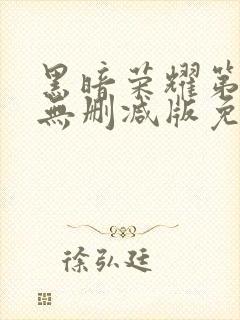 黑暗荣耀第
無删减版免
徐弘廷